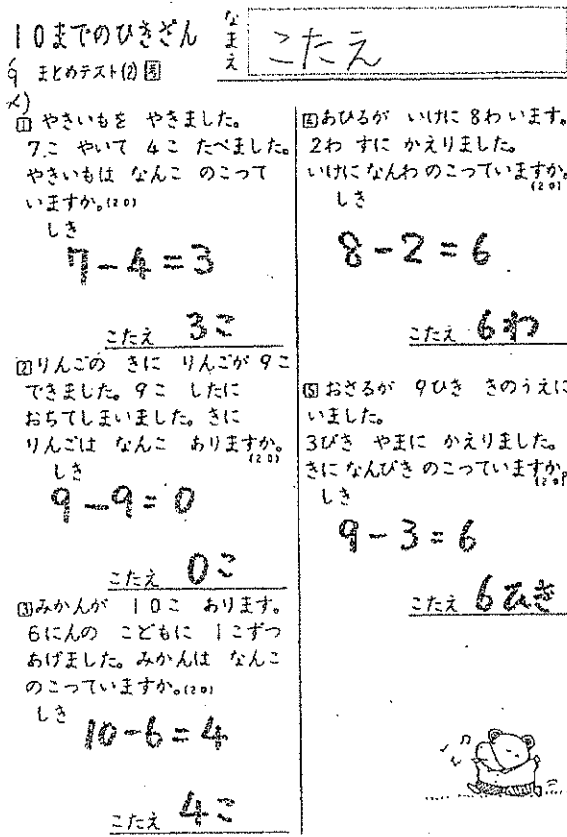 10までのひきざん
まとめテスト(2)
なまえ
こたえ
1 やきいもを やきました。
7こ やいて 4こ たべました。
やきいもは なんこ のこって
いますか。(20)
しき
7-4=3
こたえ 3こ
2 りんごの きに りんごが 9こ
できました。9こ したに
おちてしまいました。きに
りんごは なんこ ありますか。
(20)
しき
9-9=0
こたえ 0こ
3 みかんが 10こ あります。
6にんの こどもに 1こずつ
あげました。みかんは なんこ
のこっていますか。(20)
しき
10-6=4
こたえ 4こ
4 あひるが いけに 8わ います。
2わ すに かえりました。
いけに なんわ のこっていますか。
(20)
しき
8-2=6
こたえ 6わ
5 おさるが 9ひき きのうえに
いました。
3びき やまに かえりました。
きに なんびき のこっていますか。
(20)
しき
9-3=6
こたえ 6ひき